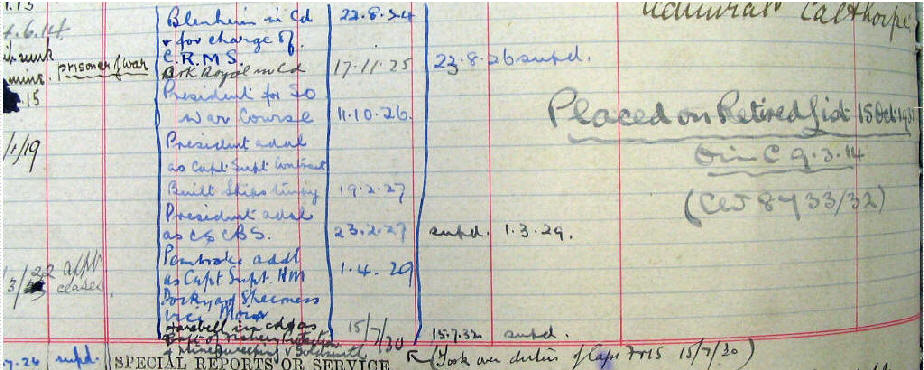 Admiral Calthorpe
Blenheim in Cd 22.8.24
4.6.14
& for charge of
prisoner of war C.R.M.S.
Ark Royal in Cd 17.11.25 22.8.26 supd.
President for SO
War Course 11.10.26.
Placed on Retired List 15 Oct
1/1/19
President addl
as Capt Supt Contract
O in C 9.3.14
Built Ships 19.2.27
(CW 8433/32)
President addl
as CS CBS. 23.2.27 supd. 1.3.29.
Pembroke addl
as Capt Supt HM 1.4.29
Dockyard Sheerness
vice
Harebell in cd as 15/7/30 15.7.32 supd.
Capt of Fishery Protection
& Minesweeping
(Took over duties of Capt 15/7/30)
supd. SPECIAL REPORTS OR SERVICE